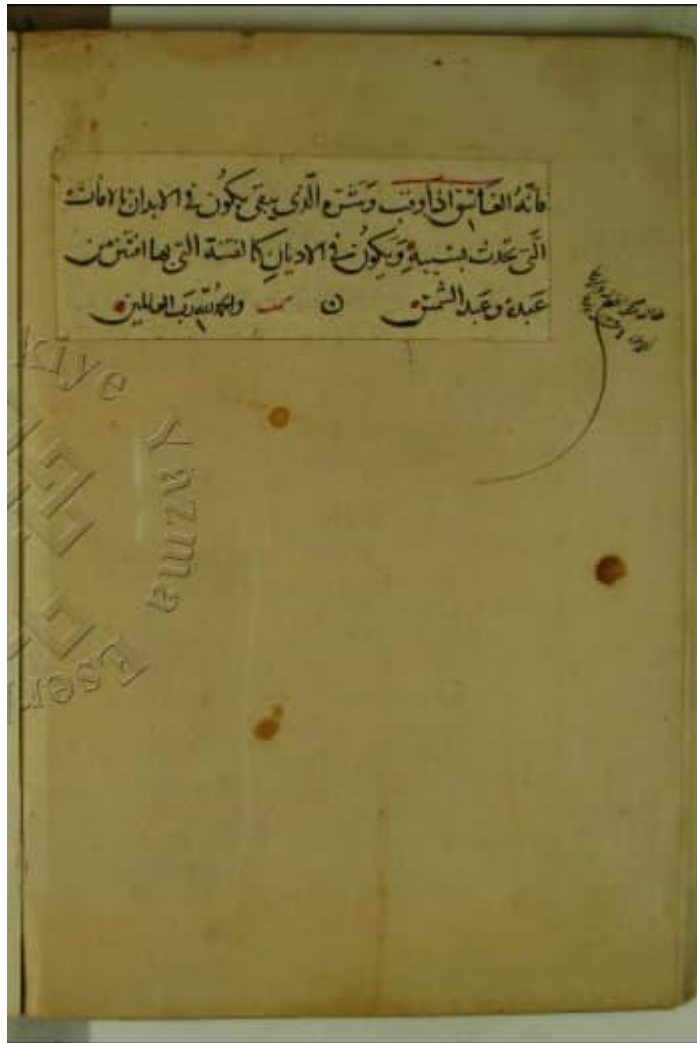 فانه الغاسق اذا وقب وشره الذى يبقى يكون فى الابدان بالافات
الَّتى تحدث بسببه ويكون فى الاديان كالفتنة التى بها افتتن من
عبده وعبد الشمس ن تمت والحمد لله رب العالمين
kiye Yazma Eser